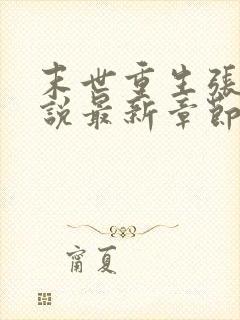 末世重生張
說最新章節
甯夏